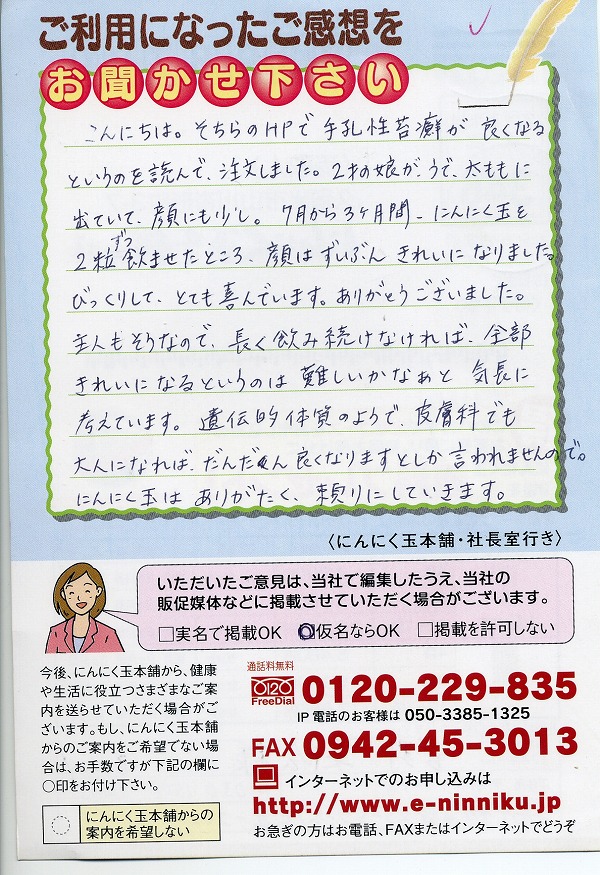 ご利用になったご感想を
お聞かせ下さい
こんにちは。そちらのHPで 手孔性苔癬が 良くなる
というのを読んで、注文しました。2才の娘が、うで、太ももに
出ていて、顔にも少し。7月から3ヶ月間、にんにく玉を
2粒ずつ飲ませたところ、顔は ずいぶん きれいに なりました。
びっくりして、とても喜んでいます。ありがとうございました。
主人もそうなので、長く飲み続けなければ、全部
きれいに なるというのは 難しいかなぁと 気長に
考えています。遺伝的体質のようで、皮膚科でも
大人になれば、だんだん 良くなりますとしか 言われませんので。
にんにく玉は ありがたく、頼りにしていきます。
〈にんにく玉本舗・社長室行き〉
いただいたご意見は、当社で編集したうえ、当社の
販促媒体などに掲載させていただく場合がございます。
□実名で掲載OK □仮名ならOK □掲載を許可しない
今後、にんにく玉本舗から、健康
や生活に役立つさまざまなご案
内を送らせていただく場合がご
ざいます。もし、にんにく玉本舗
からのご案内をご希望でない場
合は、お手数ですが下記の欄に
○印をお付け下さい。
にんにく玉本舗からの
案内を希望しない
通話料無料
0120
FreeDial
0120-229-835
IP電話のお客様は 050-3385-1325
FAX 0942-45-3013
インターネットでのお申し込みは
http://www.e-ninniku.jp
お急ぎの方はお電話、FAXまたはインターネットでどうぞ